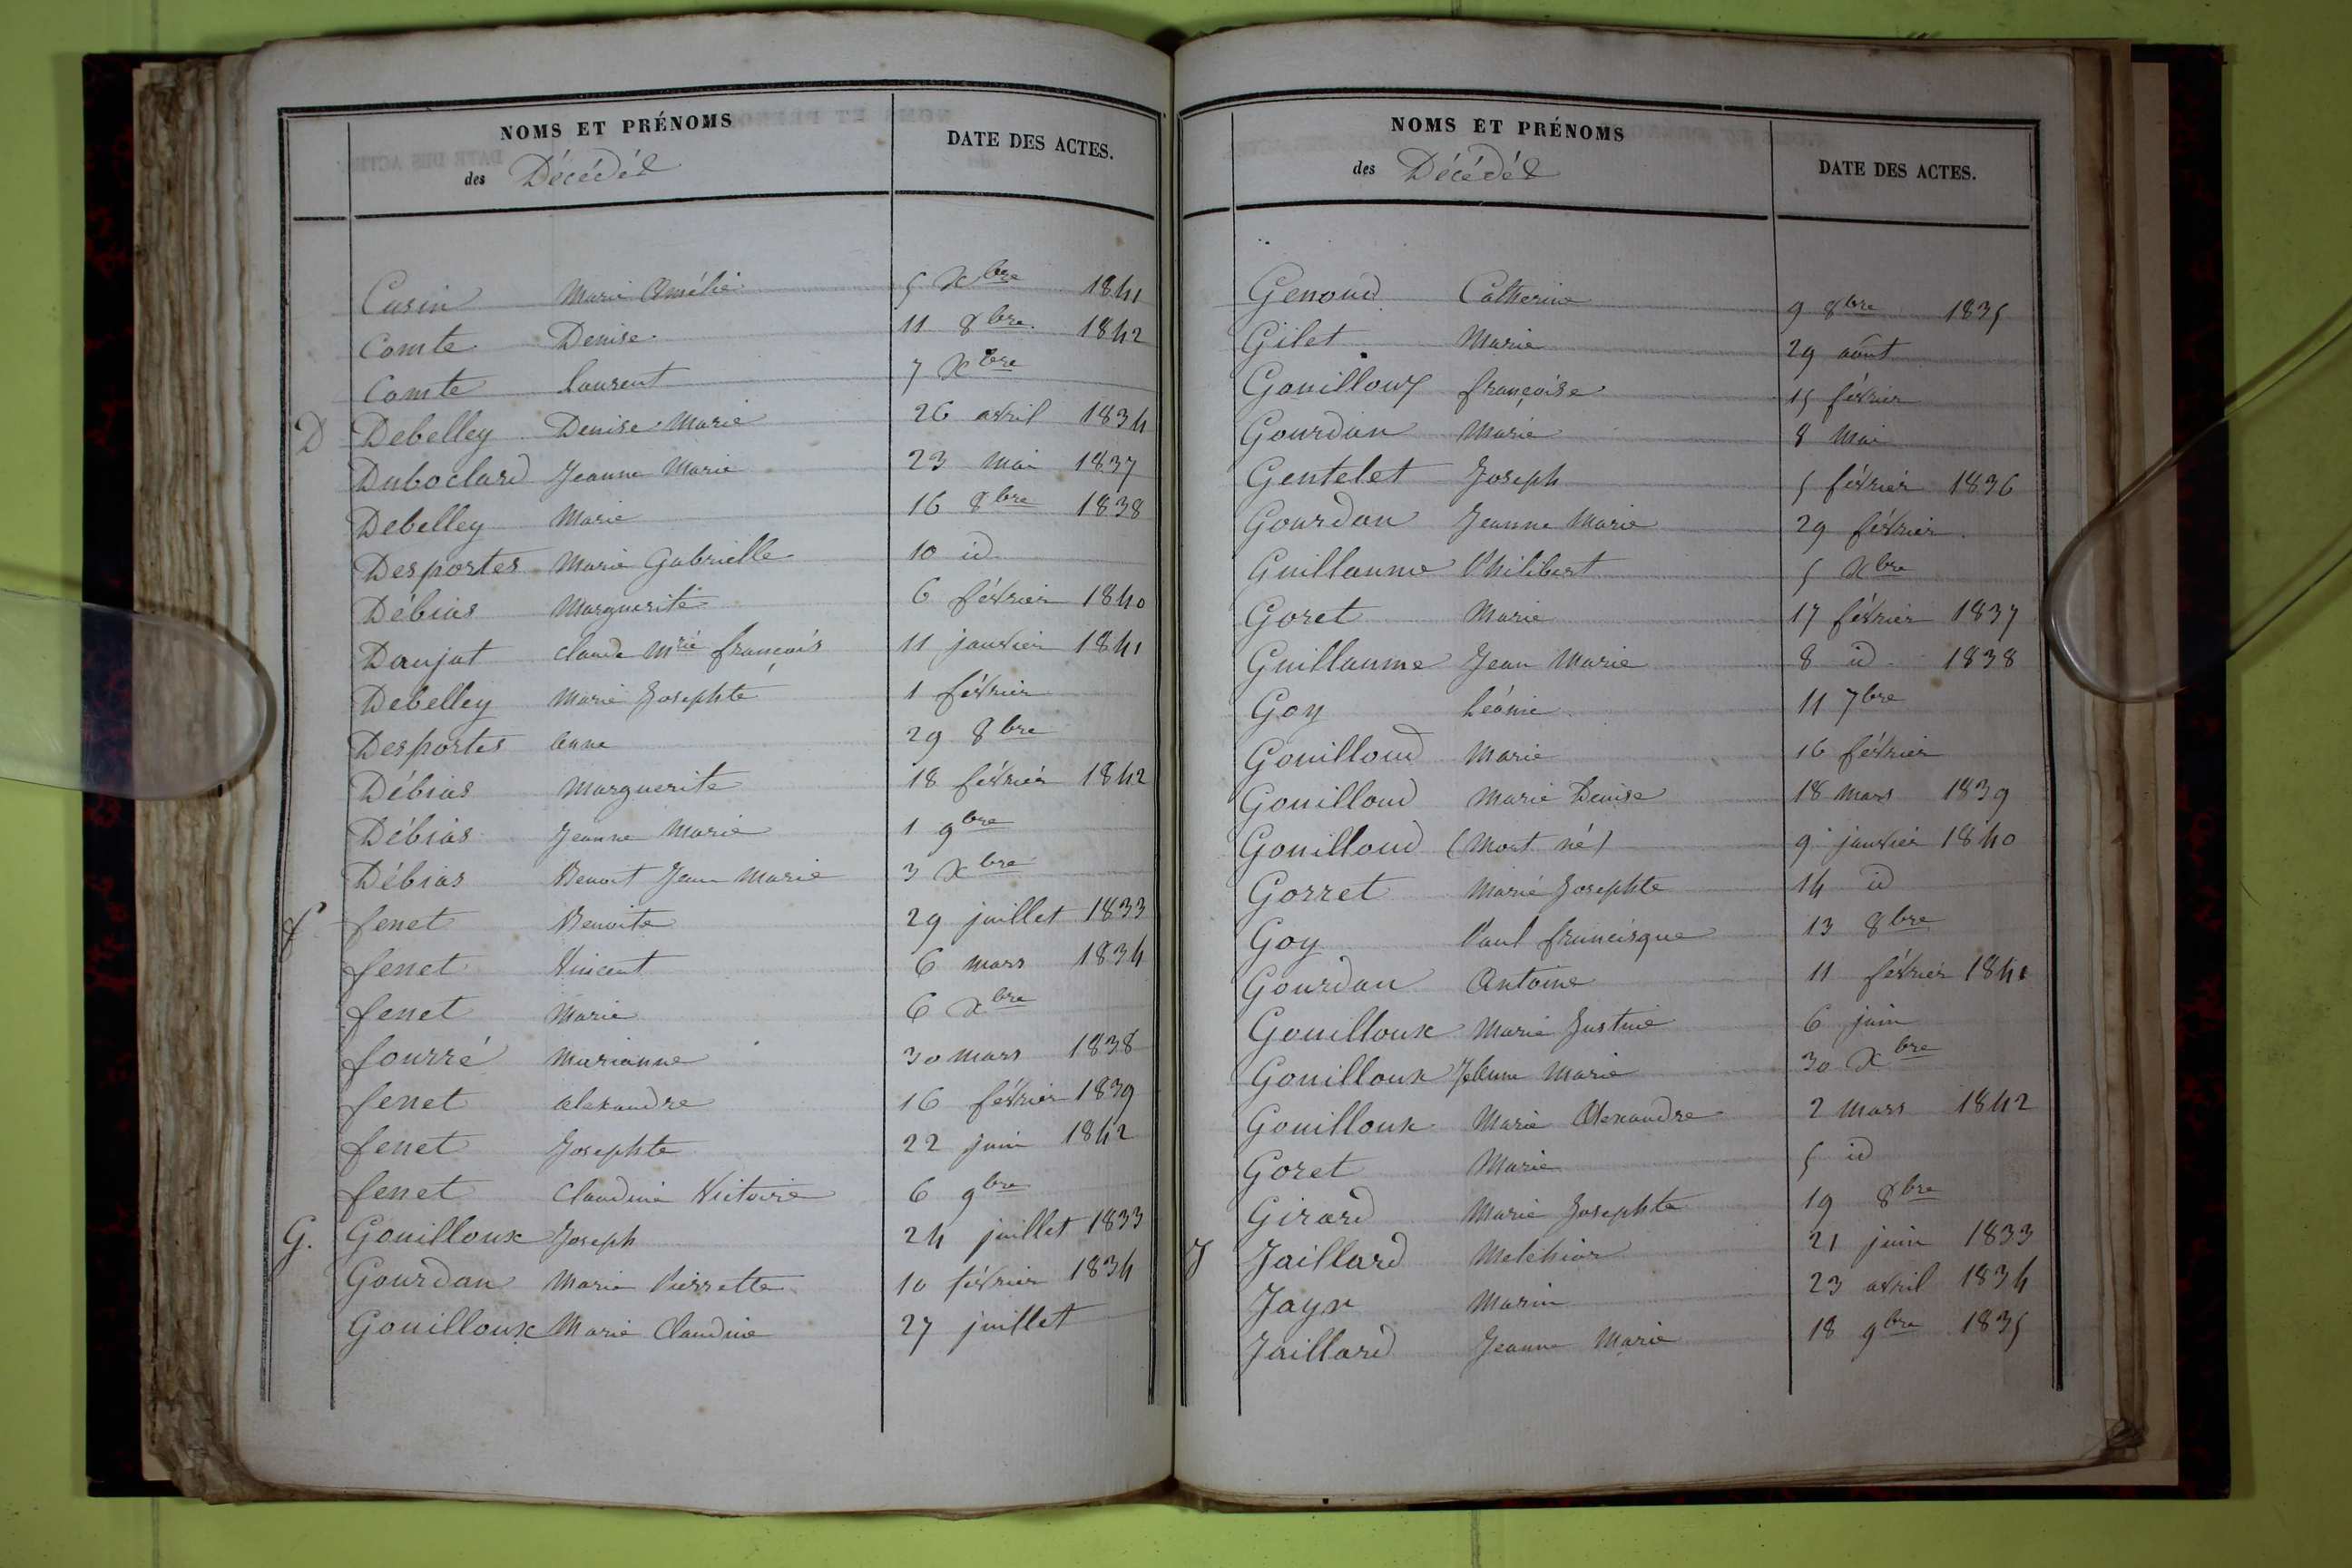 NOMS ET PRÉNOMS
des Décédés
DATE DES ACTES.
Cusin Marie Amélie 5 Xbre 1841
Comte Denise 11 8bre 1842
Comte Laurent 7 Xbre
D Debelley Denise Marie 26 avril 1834
Duboclard Jeanne Marie 23 mai 1837
Debelley Marie 16 8bre 1838
Desportes Marie Gabrielle 10 id
Débias Marguerite 6 février 1840
Daujat Claude Mrie françois 11 janvier 1841
Debelley Marie Josephte 1 février
Desportes Anne 29 8bre
Débias Marguerite 18 février 1842
Débias Jeanne Marie 1 9bre
Débias Benoit Jean Marie 3 Xbre
f fenet Benoite 29 juillet 1833
fenet Vincent 6 mars 1834
fenet Marie 6 Xbre
fourré Marianne 30 mars 1838
fenet Alexandre 16 février 1839
fenet Josephte 22 juin 1842
fenet Claudine Victoire 6 9bre
G. Gouilloux Joseph 24 juillet 1833
Gourdan Marie Pierrette 10 février 1834
Gouilloux Marie Claudine 27 juillet
NOMS ET PRÉNOMS
des Décédés
DATE DES ACTES.
Genoud Catherine 9 8bre 1835
Gilet Marie 29 août
Gouilloux françoise 15 février
Gourdan Marie 8 Mai
Gentelet Joseph 5 février 1836
Gourdan Jeanne Marie 29 février
Guillaume Philibert 5 Xbre
Goret Marie 17 février 1837
Guillaume Jean Marie 8 id 1838
Goy Léonie 11 7bre
Gouilloud Marie 16 février
Gouilloud Marie Denise 18 mars 1839
Gouilloud (Mort né) 9 janvier 1840
Gorret Marie Josephte 14 id
Goy Paul francisque 13 8bre
Gourdan Antoine 11 février 1841
Gouilloux Marie Justine 6 juin
Gouilloux Marie 30 Xbre
Gouilloux Marie Alexandre 2 mars 1842
Goret Marie 5 id
Girard Marie Josephte 19 8bre
J Jaillard Melchior 21 juin 1833
Jayr Marie 23 avril 1834
Jaillard Jeanne Marie 18 9bre 1835